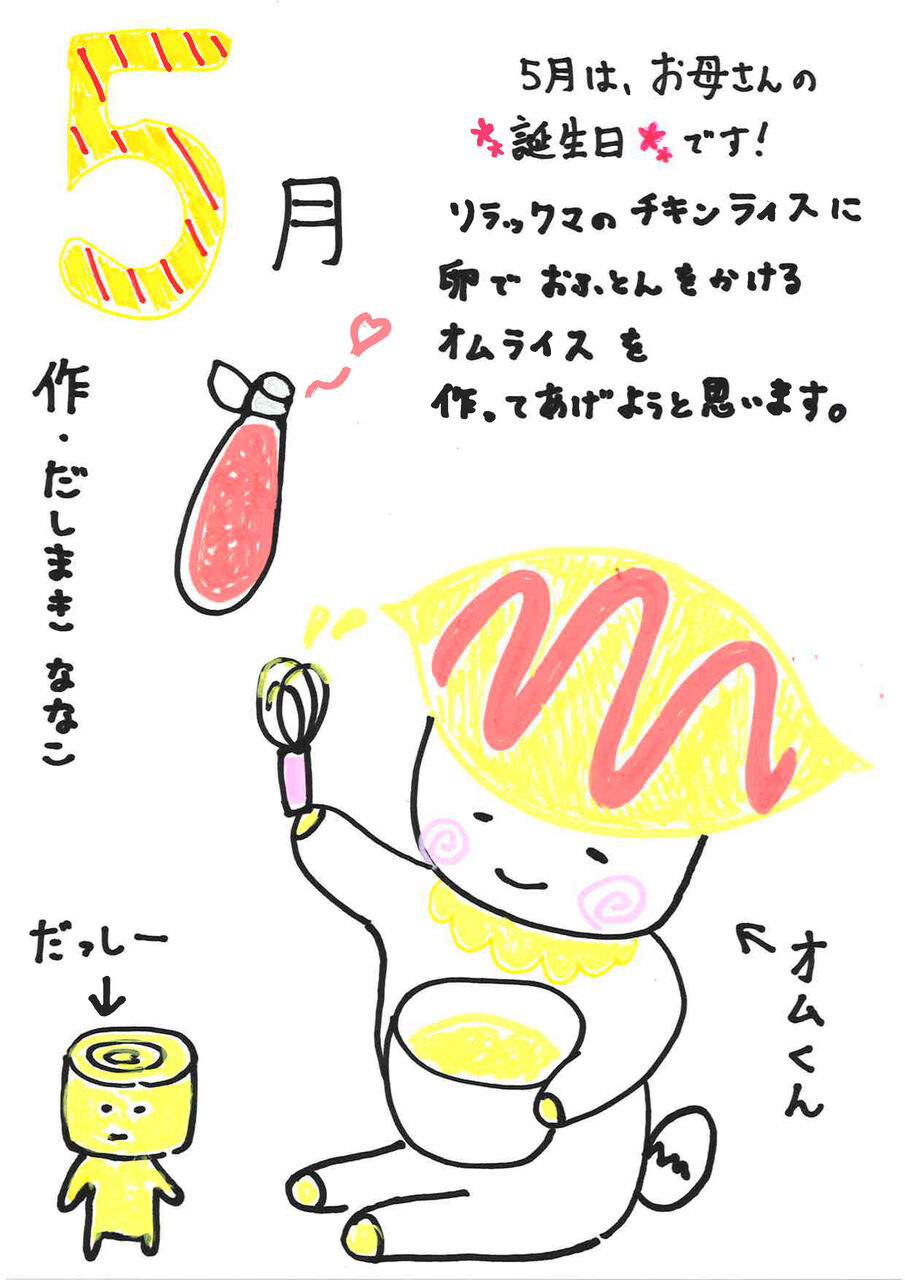 5月
5月は、お母さんの
誕生日です!
リラックマのチキンライスに
卵でおふとんをかける
オムライスを
作ってあげようと思います。
作・だしまき ななこ
だっしー
オムくん